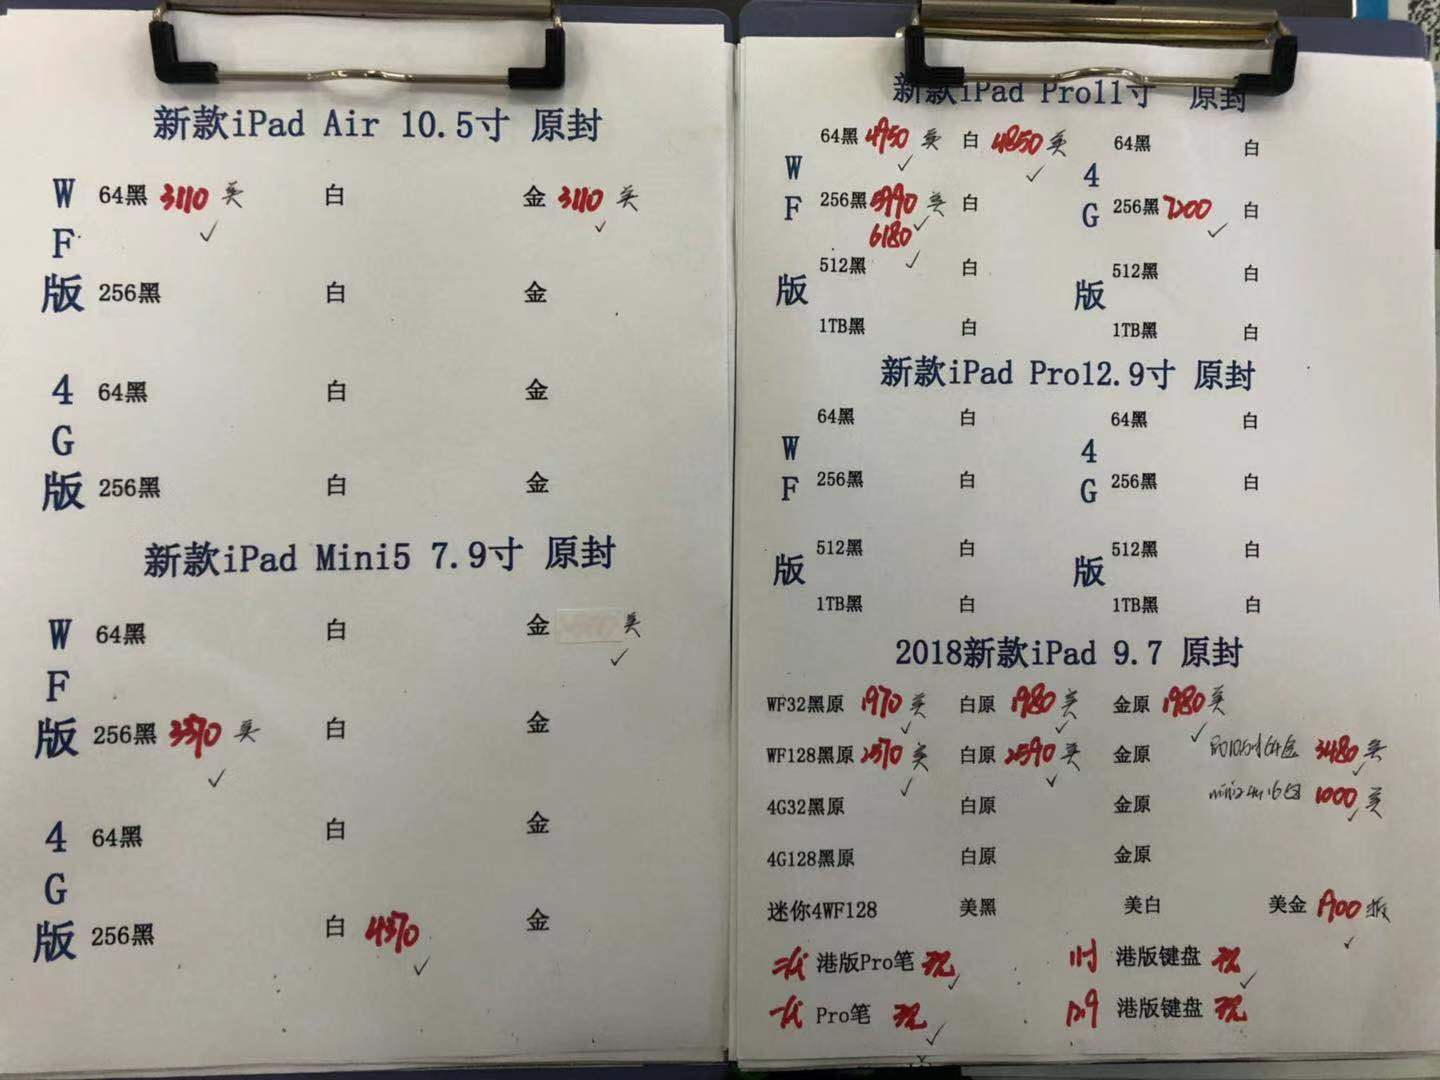 新款iPad Air 10.5寸 原封
WF版
64黑 3110 美 白 金 3110 美
256黑 白 金
4G版
64黑 白 金
256黑 白 金
新款iPad Mini5 7.9寸 原封
WF版
64黑 白 金 美
256黑 3370 美 白 金
4G版
64黑 白 金
256黑 白 4370 金
新款iPad Pro11寸 原封
WF版
64黑 4950 美 白 4850 美
256黑 5990 美 白
6180
512黑 白
1TB黑 白
4G版
64黑 白
256黑 7200 白
512黑 白
1TB黑 白
新款iPad Pro12.9寸 原封
WF版
64黑 白
256黑 白
512黑 白
1TB黑 白
4G版
64黑 白
256黑 白
512黑 白
1TB黑 白
2018新款iPad 9.7 原封
WF32黑原 1970 美 白原 1980 美 金原 1980 美
WF128黑原 2570 美 白原 2590 美 金原
3480 美
4G32黑原 白原 金原
1000 美
4G128黑原 白原 金原
迷你4WF128 美黑 美白 美金 1900
二代 港版Pro笔 现 11寸 港版键盘 现
一代 Pro笔 现 12.9 港版键盘 现